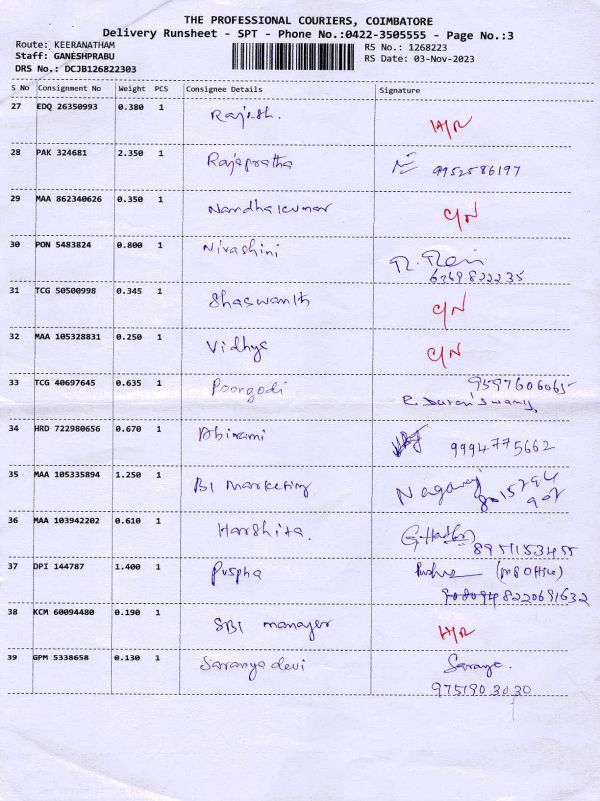 THE PROFESSIONAL COURIERS, COIMBATORE
Delivery Runsheet - SPT - Phone No.:0422-3505555 - Page No.:3
Route: KEERANATHAM
RS No.: 1268223
Staff: GANESHPRABU
RS Date: 03-Nov-2023
DRS No.: DCJB126822303
S No Consignment No Weight PCS Consignee Details Signature
27 EDQ 26350993 0.380 1 Rajesh. H/R
28 PAK 324681 2.350 1 Rajapratha 9952586197
29 MAA 862340626 0.350 1 Nandhakumar C/N
30 PON 5483824 0.800 1 Nivashini
6369822235
31 TCG 50500998 0.345 1 Shaswanth C/N
32 MAA 105328831 0.250 1 Vidhya C/N
33 TCG 40697645 0.635 1 Poorgodi 9597606065
34 HRD 722980656 0.670 1 Abirami 9994775662
35 MAA 105335894 1.250 1 BI marketing Nagaraj
36 MAA 103942202 0.610 1 Harshita.
37 DPI 144787 1.400 1 Puspha
8220691632
38 KCM 60094480 0.190 1 SBI manager H/R
39 GPM 5338658 0.130 1 Saranya devi Saranya.
9751903030